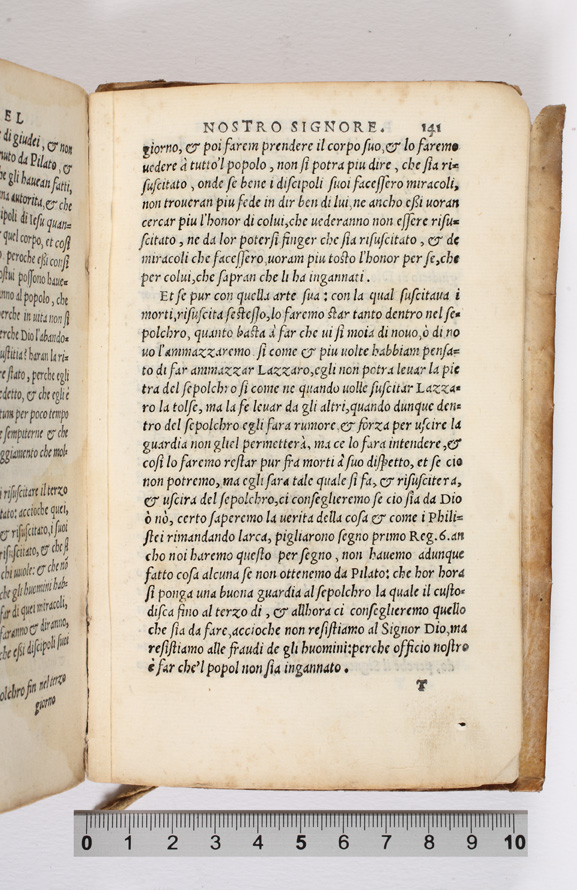 EL
di giudei, & non
nuto da Pilato, &
he gli haueau fatti,
na autorita, & che
ipoli di Iesu quan-
quel corpo, et cosi
peroche eßi consi
ostui possono haue-
nno al popolo, che
perche in uita non si
erche Dio l'abando-
iustitia? haran la ri-
re stato, perche egli
edetto, & che egli è
tum per poco tempo
e sempiterne & che
ggiamento che mol-
i risuscitare il terzo
tato: accioche quei,
& risuscitato, i suoi
risuscitato, & che si
chi uuole: & che nõ
che gli huomini hab-
far di quei miracoli,
faranno & diranno,
che eßi discipoli suoi
polchro fin nel terzo
giorno
NOSTRO SIGNORE. 141
giorno, & poi farem prendere il corpo suo, & lo faremo
uedere à tutto'l popolo, non si potra piu dire, che sia ri-
suscitato, onde se bene i discipoli suoi facessero miracoli,
non troueran piu fede in dir ben di lui, ne ancho eßi uoran
cercar piu l'honor di colui, che uederanno non essere risu-
scitato, ne da lor potersi finger che sia risuscitato, & de
miracoli che facessero, uoram piu tosto l'honor per se, che
per colui, che sapran che li ha ingannati.
Et se pur con quella arte sua: con la qual suscitaua i
morti, risuscita se stesso, lo faremo star tanto dentro nel se-
polchro, quanto basta à far che ui si moia di nouo, ò di no
uo l'ammazzaremo si come & piu uolte habbiam pensa-
to di far ammazzar Lazzaro, egli non potra leuar la pie
tra del sepolchro si come ne quando uolle suscitar Lazza-
ro la tolse, ma la fe leuar da gli altri, quando dunque den-
tro del sepolchro egli fara rumore, & forza per uscire la
guardia non gliel permetterà, ma ce lo fara intendere, &
cosi lo faremo restar pur fra morti à suo dispetto, et se cio
non potremo, ma egli sara tale quale si fa, & risuscitera,
& uscira del sepolchro, ci conseglieremo se cio sia da Dio
ò nò, certo saperemo la uerita della cosa & come i Phili-
stei rimandando larca, pigliarono segno primo Reg. 6. an
cho noi haremo questo per segno, non hauemo adunque
fatto cosa alcuna se non ottenemo da Pilato: che hor hora
si ponga una buona guardia al sepolchro la quale il custo-
disca fino al terzo di, & allhora ci conseglieremo quello
che sia da fare, accioche non resistiamo al Signor Dio, ma
resistiamo alle fraudi de gli huomini: perche officio nostro
è far che'l popol non sia ingannato.
T
0 1 2 3 4 5 6 7 8 9 10